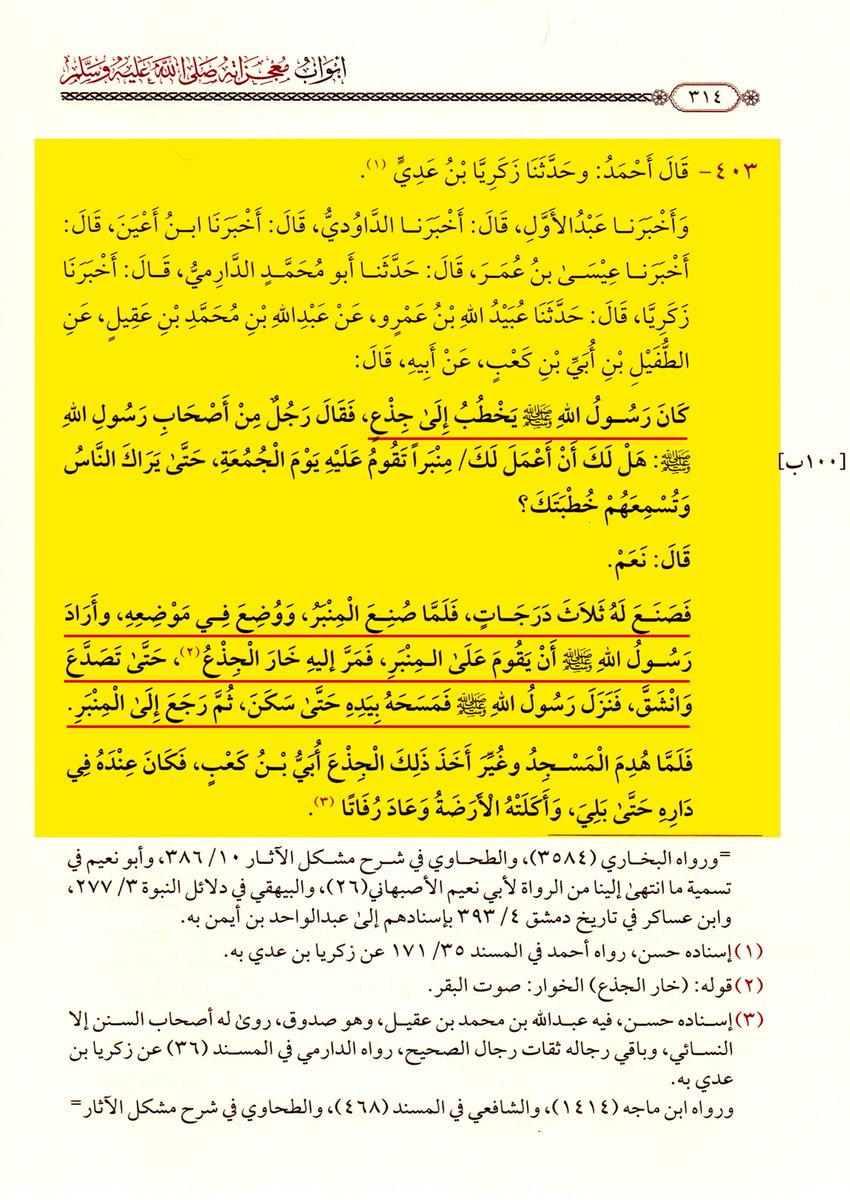 أبواب معجزاته صلى الله عليه وسلم
٣١٤
٤٠٣- قَالَ أَحْمَدُ: وحَدَّثَنَا زَكَرِيَّا بْنُ عَدِيٍّ (١).
وَأَخْبَرَنا عَبْدُالأَوَّلِ، قَالَ: أَخْبَرَنا الدَّاوُديُّ، قَالَ: أَخْبَرَنَا ابنُ أَعْيَنَ، قَالَ:
أَخْبَرَنا عِيْسَىٰ بنُ عُمَرَ، قَالَ: حَدَّثَنا أَبو مُحَمَّدٍ الدَّارِميُّ، قَالَ: أَخْبَرَنَا
زَكَرِيَّا، قَالَ: حَدَّثَنَا عُبَيْدُ اللهِ بْنُ عَمْرٍو، عَنْ عَبْدِاللهِ بْنِ مُحَمَّدِ بْنِ عَقِيلٍ، عَنِ
الطُّفَيْلِ بْنِ أُبَيِّ بْنِ كَعْبٍ، عَنْ أَبِيهِ، قَالَ:
كَانَ رَسُولُ اللهِ ﷺ يَخْطُبُ إِلَىٰ جِذْعٍ، فَقَالَ رَجُلٌ مِنْ أَصْحَابِ رَسُولِ اللهِ
ﷺ: هَلْ لَكَ أَنْ أَعْمَلَ لَكَ/ مِنْبَراً تَقُومُ عَلَيْهِ يَوْمَ الْجُمُعَةِ، حَتَّىٰ يَرَاكَ النَّاسُ
[١٠٠ب]
وَتُسْمِعَهُمْ خُطْبَتَكَ؟
قَالَ: نَعَمْ.
فَصَنَعَ لَهُ ثَلاَثَ دَرَجَاتٍ، فَلَمَّا صُنِعَ الْمِنْبَرُ، وَوُضِعَ فِي مَوْضِعِهِ، وأَرَادَ
رَسُولُ اللهِ ﷺ أَنْ يَقُومَ عَلَىٰ المِنْبَرِ، فَمَرَّ إليهِ خَارَ الْجِذْعُ(٢)، حَتَّىٰ تَصَدَّعَ
وَانْشَقَّ، فَنَزَلَ رَسُولُ اللهِ ﷺ فَمَسَحَهُ بِيَدِهِ حَتَّىٰ سَكَنَ، ثُمَّ رَجَعَ إِلَىٰ الْمِنْبَرِ.
فَلَمَّا هُدِمَ الْمَسْجِدُ وغُيِّرَ أَخَذَ ذَلِكَ الْجِذْعَ أُبَيُّ بْنُ كَعْبٍ، فَكَانَ عِنْدَهُ فِي
دَارِهِ حَتَّىٰ بَلِيَ، وَأَكَلَتْهُ الْأَرَضَةُ وَعَادَ رُفَاتًا (٣).
=ورواه البخاري (٣٥٨٤)، والطحاوي في شرح مشكل الآثار ١٠/ ٣٨٦، وأبو نعيم في
تسمية ما انتهىٰ إلينا من الرواة لأبي نعيم الأصبهاني(٢٦)، والبيهقي في دلائل النبوة ٣/ ٢٧٧،
وابن عساكر في تاريخ دمشق ٤/ ٣٩٣ بإسنادهم إلىٰ عبدالواحد بن أيمن به.
(١) إسناده حسن، رواه أحمد في المسند ٣٥/ ١٧١ عن زكريا بن عدي به.
(٢) قوله: (خار الجذع) الخوار: صوت البقر.
(٣) إسناده حسن، فيه عبدالله بن محمد بن عقيل، وهو صدوق، روىٰ له أصحاب السنن إلا
النسائي، وباقي رجاله ثقات رجال الصحيح، رواه الدارمي في المسند (٣٦) عن زكريا بن
عدي به.
ورواه ابن ماجه (١٤١٤)، والشافعي في المسند (٤٦٨)، والطحاوي في شرح مشكل الآثار=